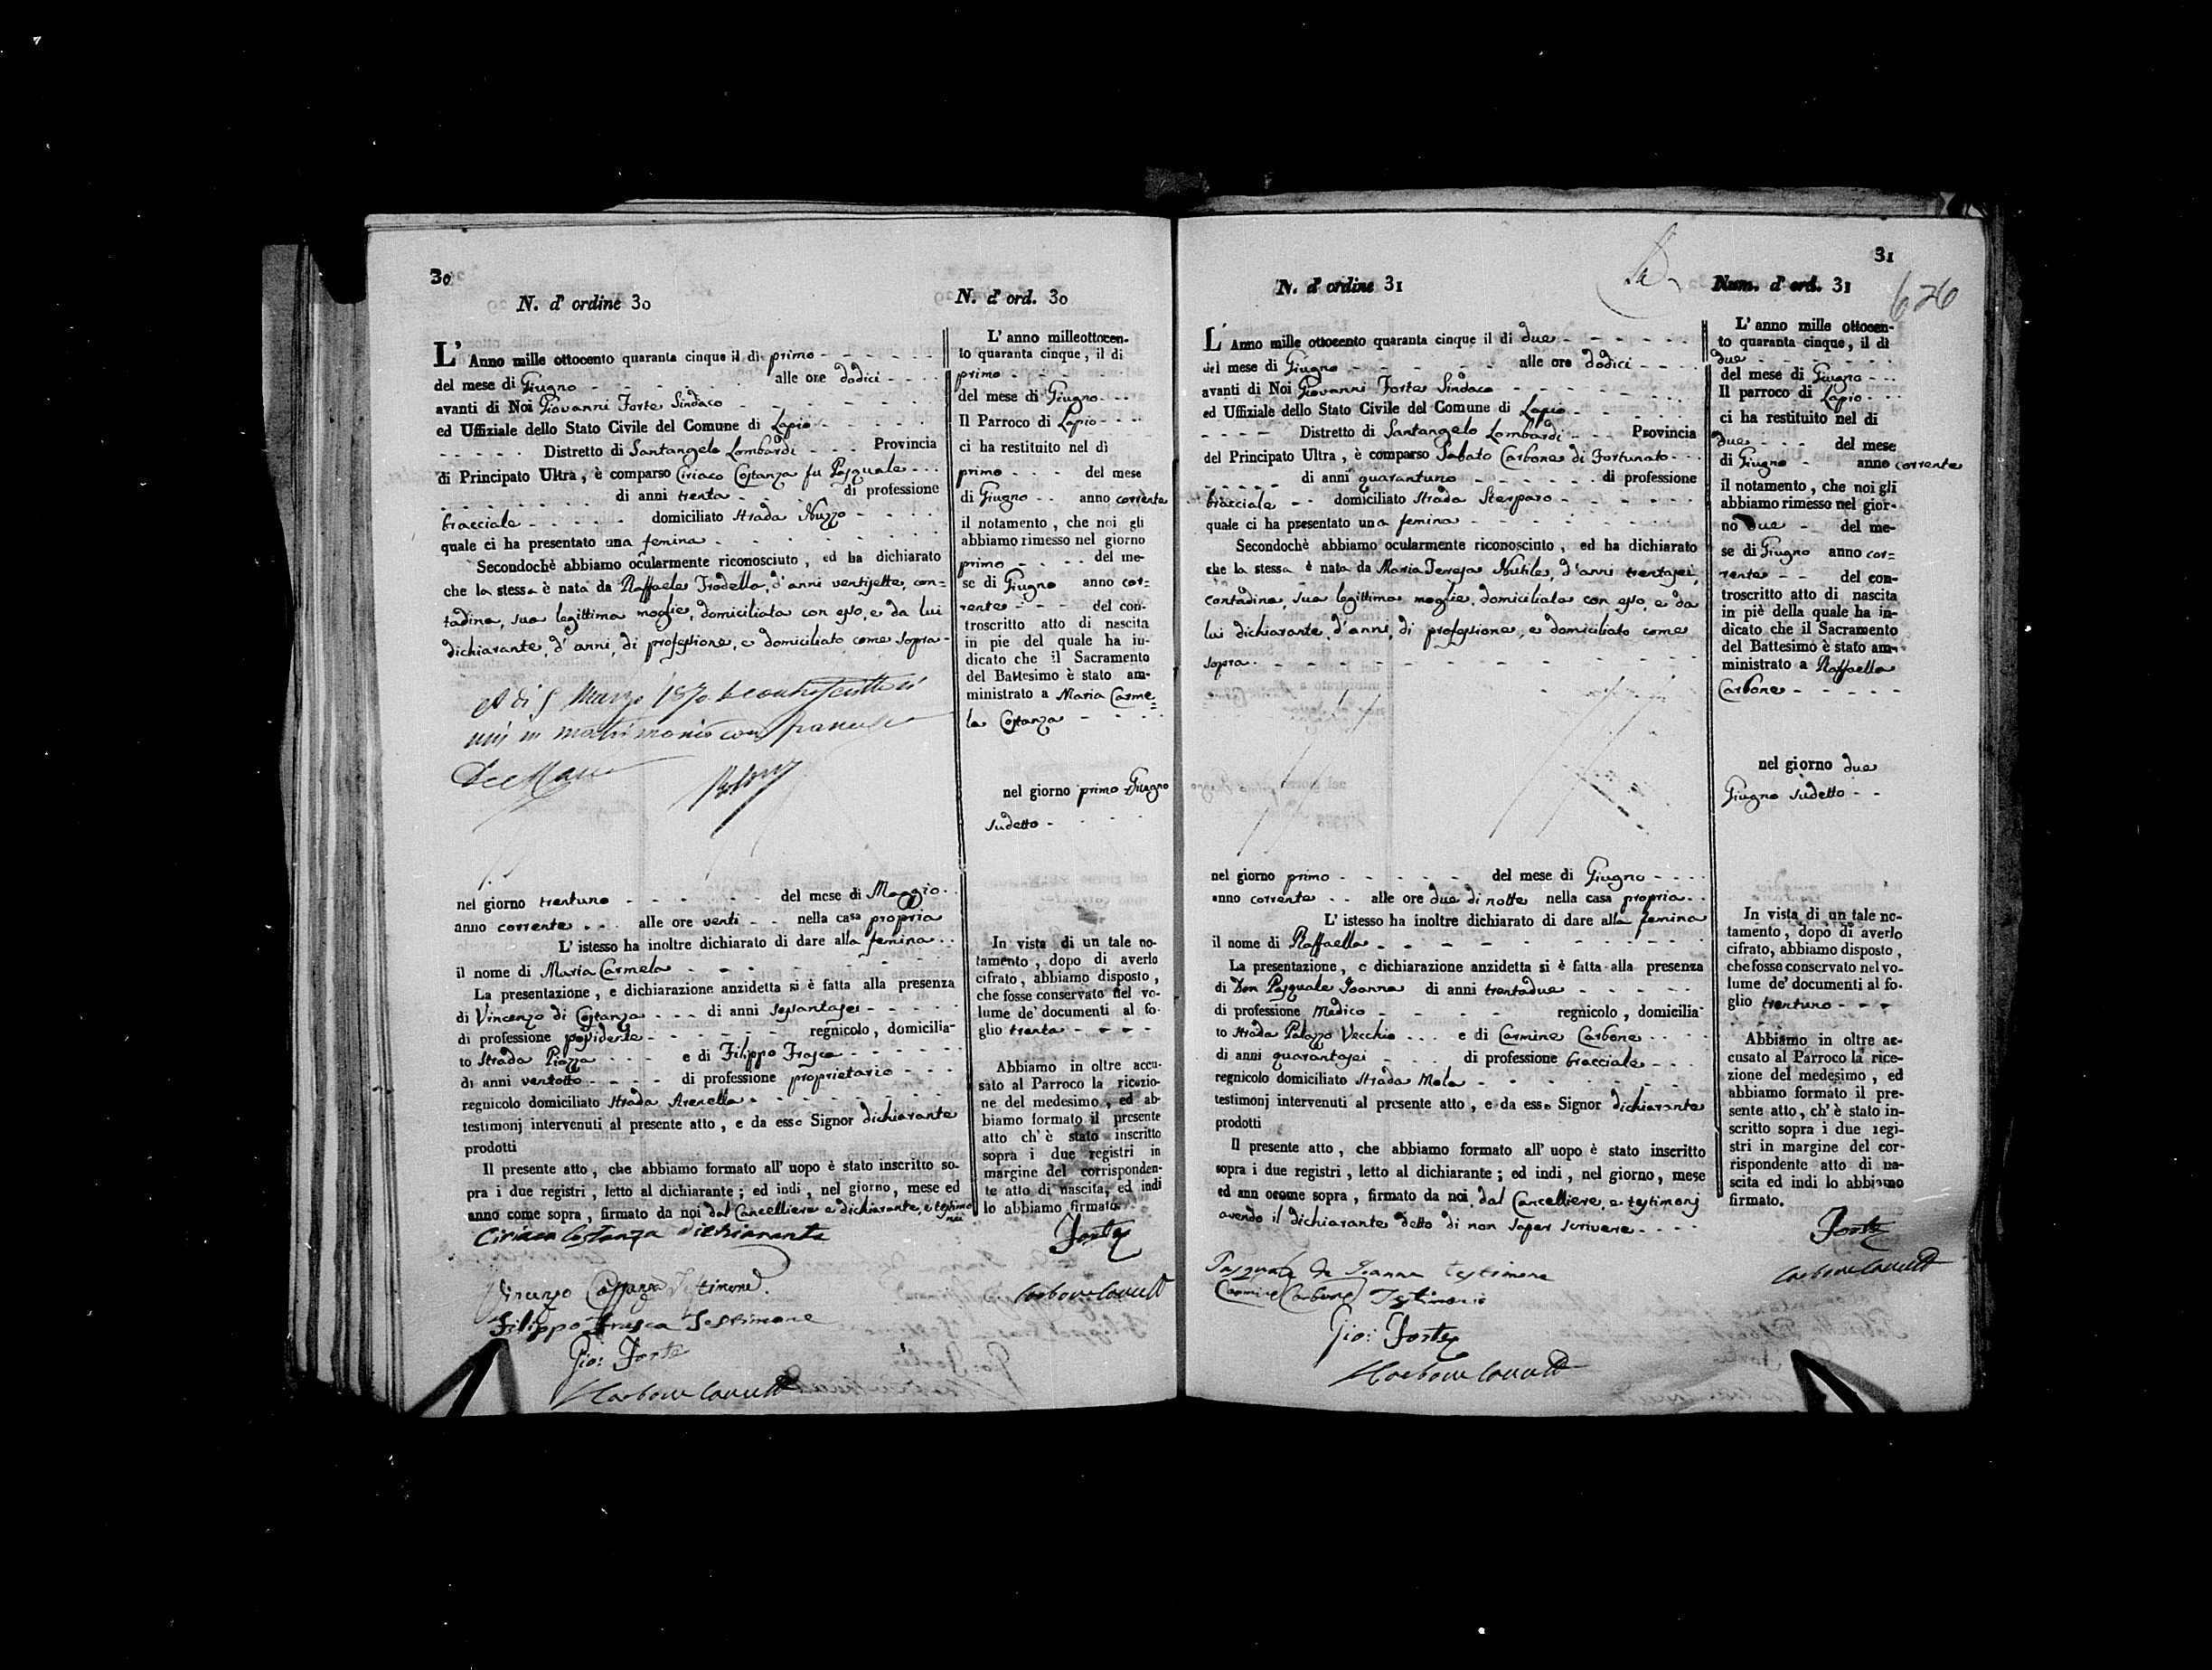 30
N. d' ordine 30
L' Anno mille ottocento quaranta cinque il di primo
del mese di Giugno alle ore dodici
avanti di Noi Giovanni Forte Sindaco
ed Uffiziale dello Stato Civile del Comune di Lapio
Distretto di Santangelo Lombardi Provincia
di Principato Ultra, è comparso Ciriaco Costanza fu Pasquale
di anni trenta di professione
bracciale domiciliato Strada
quale ci ha presentato una femina
Secondochè abbiamo ocularmente riconosciuto, ed ha dichiarato
che la stessa è nata da Raffaela Frodella, d'anni ventisette, con=
tadina, sua legittima moglie, domiciliata con esso, e da lui
dichiarante, d'anni, di professione, e domiciliato come sopra
A di 5 Marzo 1870 la controscritta si
unì in matrimonio con
nel giorno trentuno del mese di Maggio
anno corrente alle ore venti nella casa propria
L' istesso ha inoltre dichiarato di dare alla femina
il nome di Maria Carmela
La presentazione, e dichiarazione anzidetta si è fatta alla presenza
di Vincenzo di Costanza di anni sessantasei
di professione possidente regnicolo, domicilia-
to Strada Piazza e di Filippo Frasca
di anni ventotto di professione proprietario
regnicolo domiciliato Strada Arenella
testimonj intervenuti al presente atto, e da esso Signor dichiarante
prodotti
Il presente atto, che abbiamo formato all' uopo è stato inscritto so-
pra i due registri, letto al dichiarante; ed indi, nel giorno, mese ed
anno come sopra, firmato da noi dal Cancelliere e dichiarante, e testimo
nii
Ciriaco Costanza dichiarante
Vincenzo Costanza Testimone
Filippo Frasca Testimone
Gio: Forte
Carbone
N. d' ord. 30
L' anno milleottocen-
to quaranta cinque, il di
primo
del mese di Giugno
Il Parroco di Lapio
ci ha restituito nel dì
primo del mese
di Giugno anno corrente
il notamento, che noi gli
abbiamo rimesso nel giorno
primo del me-
se di Giugno anno cor=
rente del con-
troscritto atto di nascita
in pie del quale ha in-
dicato che il Sacramento
del Battesimo è stato am-
ministrato a Maria Carme=
la Costanza
nel giorno primo Giugno
sudetto
In vista di un tale no-
tamento, dopo di averlo
cifrato, abbiamo disposto,
che fosse conservato nel vo-
lume de' documenti al fo-
glio trenta
Abbiamo in oltre accu-
sato al Parroco la ricezio-
ne del medesimo, ed ab-
biamo formato il presente
atto ch' è stato inscritto
sopra i due registri in
margine del corrisponden-
te atto di nascita, ed indi
lo abbiamo firmato.
Forte
Carbone
31
626
N. d' ordine 31
L' Anno mille ottocento quaranta cinque il di due
del mese di Giugno alle ore dodici
avanti di Noi Giovanni Forte Sindaco
ed Uffiziale dello Stato Civile del Comune di Lapio
Distretto di Santangelo Lombardi Provincia
del Principato Ultra, è comparso Sabato Carbone di Fortunato
di anni quarantuno di professione
bracciale domiciliato Strada Sterparo
quale ci ha presentato una femina
Secondochè abbiamo ocularmente riconosciuto, ed ha dichiarato
che la stessa è nata da Maria Teresa Nutile, d'anni trentasei,
contadina, sua legittima moglie, domiciliata con esso, e da
lui dichiarante, d'anni, di professione, e domiciliato come
sopra
nel giorno primo del mese di Giugno
anno corrente alle ore due di notte nella casa propria
L' istesso ha inoltre dichiarato di dare alla femina
il nome di Raffaella
La presentazione, e dichiarazione anzidetta si è fatta alla presenza
di Don Pasquale Joanna di anni trentadue
di professione Medico regnicolo, domicilia-
to Strada Palazzo Vecchio e di Carmine Carbone
di anni quarantasei di professione bracciale
regnicolo domiciliato Strada Mela
testimonj intervenuti al presente atto, e da esso Signor dichiarante
prodotti
Il presente atto, che abbiamo formato all' uopo è stato inscritto
sopra i due registri, letto al dichiarante; ed indi, nel giorno, mese
ed ann ocome sopra, firmato da noi dal Cancelliere e testimonj
avendo il dichiarante detto di non saper scrivere
Pasquale de Joanna testimone
Carmine Carbone Testimonio
Gio: Forte
Carbone
Num. d' ord. 31
L' anno mille ottocen-
to quaranta cinque, il dì
due
del mese di Giugno
Il parroco di Lapio
ci ha restituito nel di
due del mese
di Giugno anno corrente
il notamento, che noi gli
abbiamo rimesso nel gior-
no due del me-
se di Giugno anno cor=
rente del con-
troscritto atto di nascita
in piè della quale ha in-
dicato che il Sacramento
del Battesimo è stato am-
ministrato a Raffaella
Carbone
nel giorno due
Giugno sudetto
In vista di un tale no-
tamento, dopo di averlo
cifrato, abbiamo disposto,
che fosse conservato nel vo-
lume de' documenti al fo-
glio trentuno
Abbiamo in oltre ac-
cusato al Parroco la rice-
zione del medesimo, ed
abbiamo formato il pre-
sente atto, ch' è stato in-
scritto sopra i due regi-
stri in margine del cor-
rispondente atto di na-
scita ed indi lo abbiamo
firmato.
Forte
Carbone